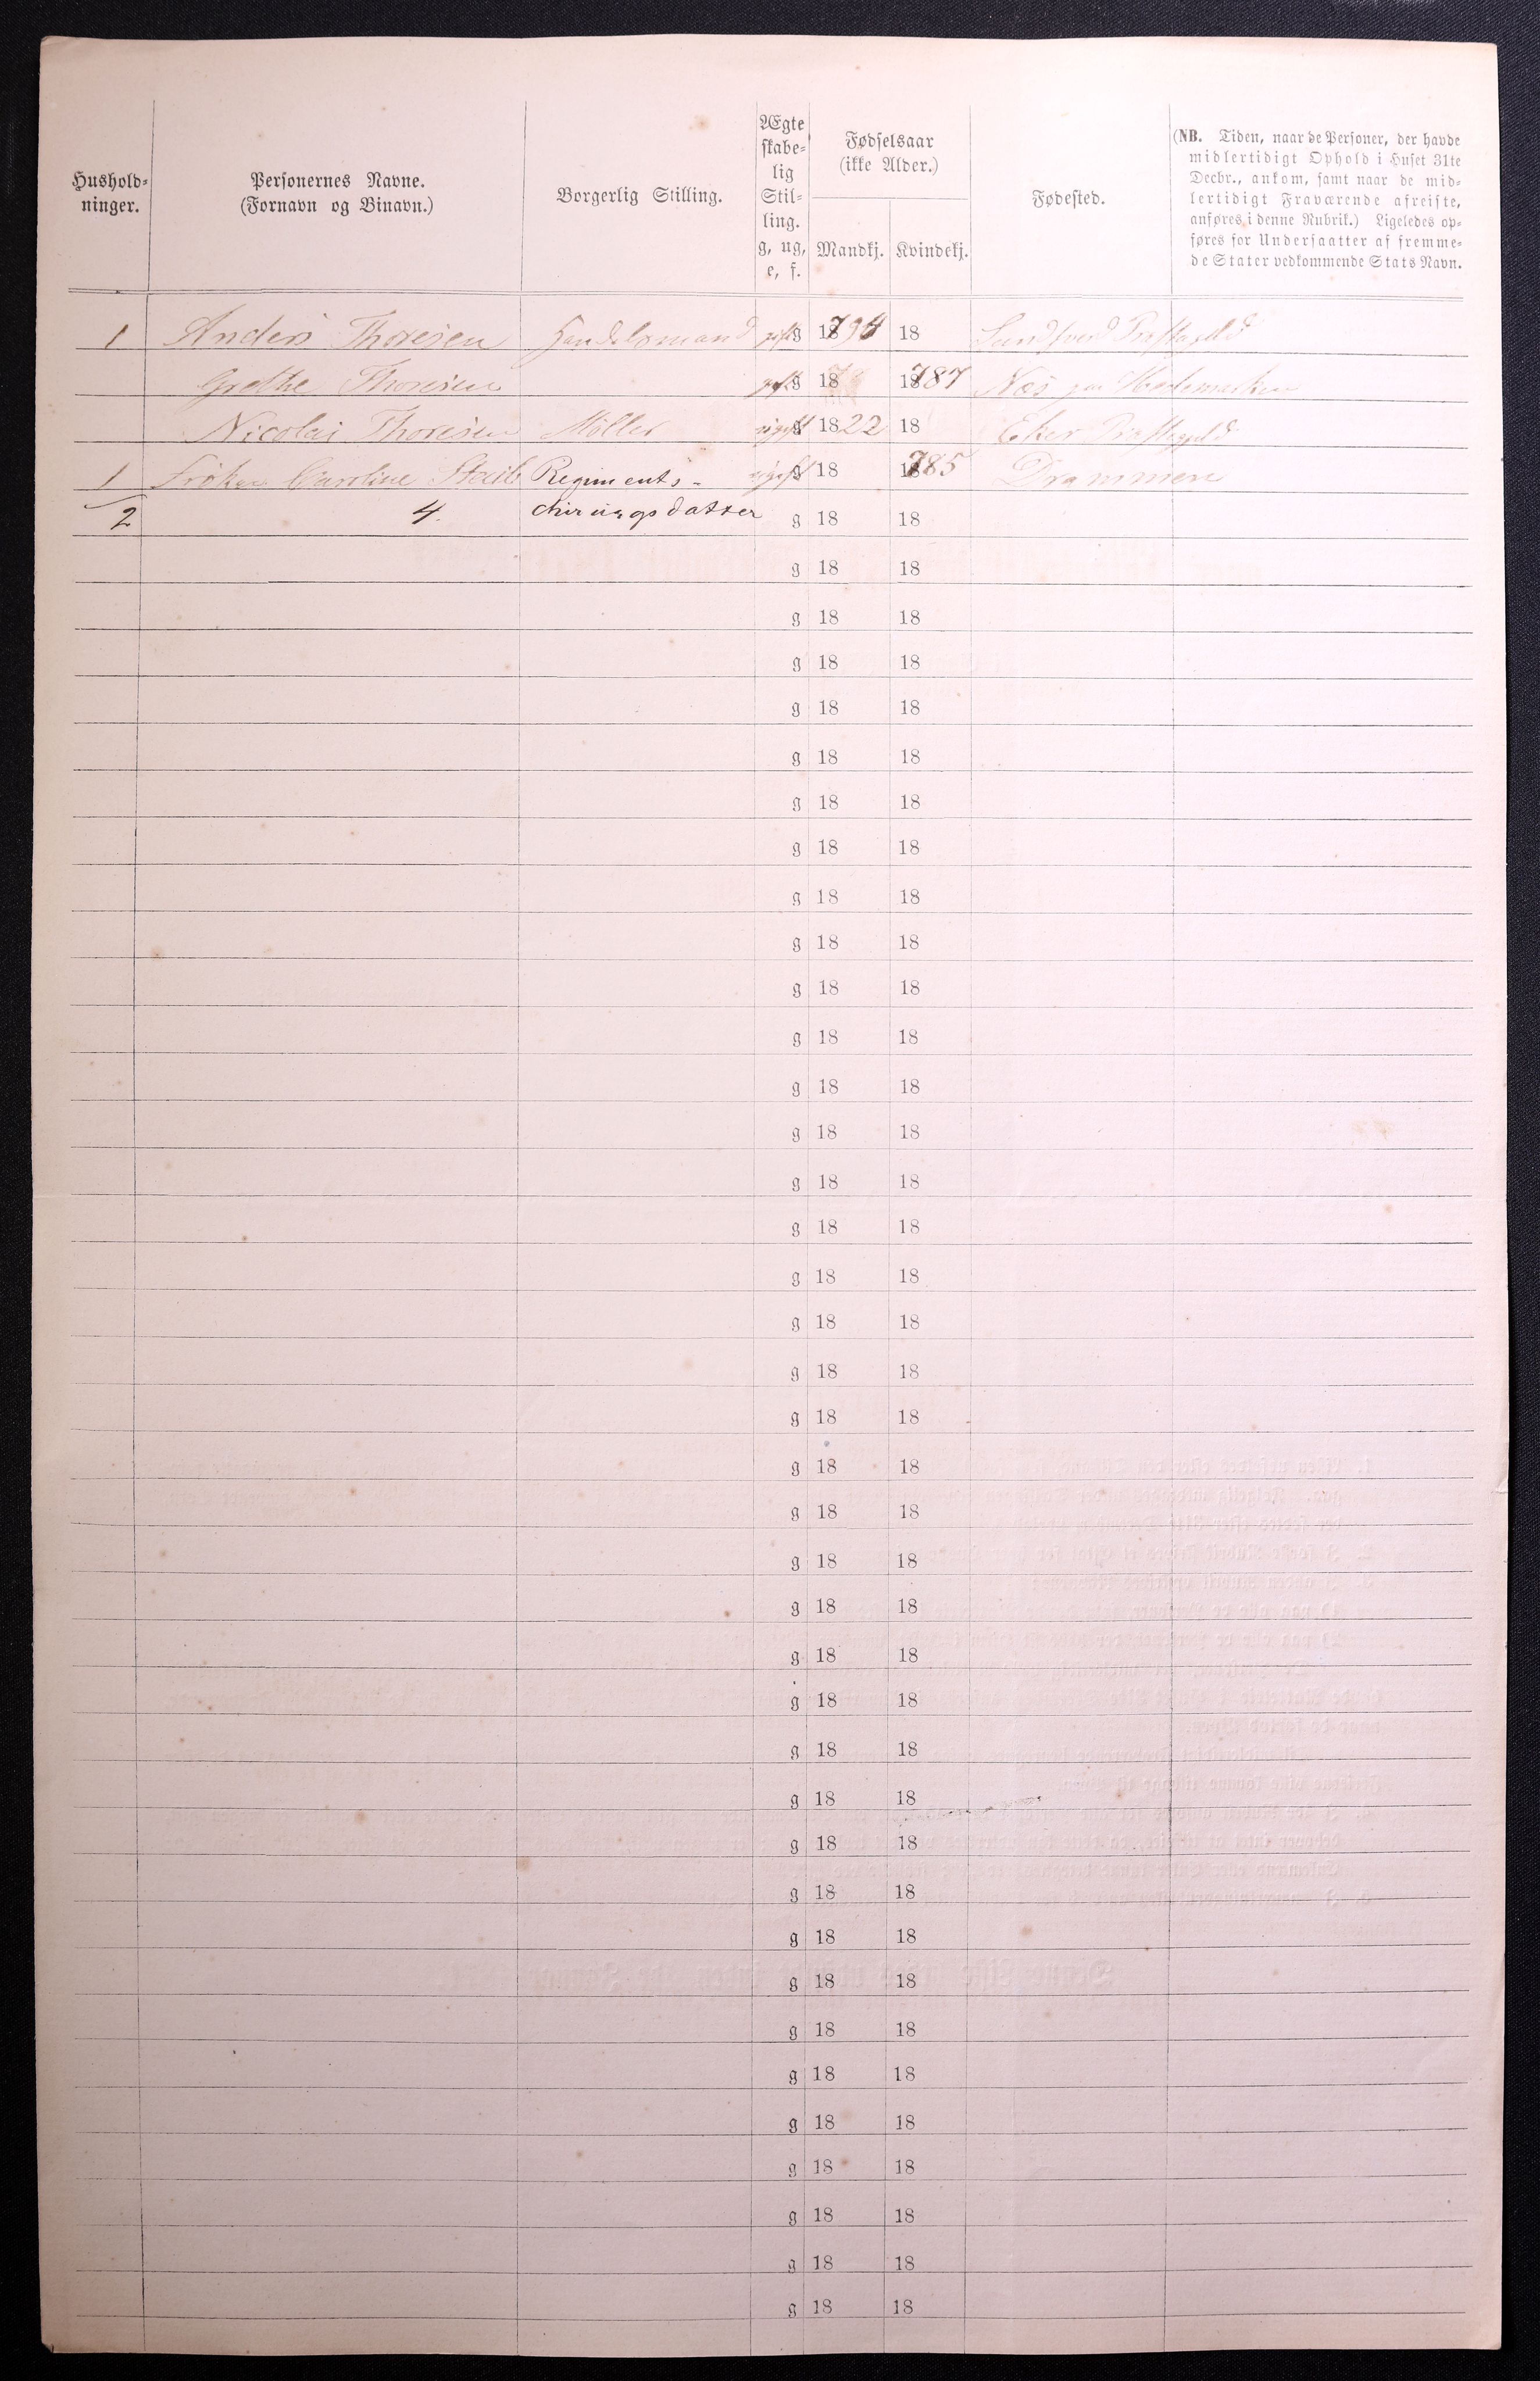 Hushold-
ninger.
Personernes Navne.
(Fornavn og Binavn.)
Borgerlig Stilling.
Ægte
skabe-
lig
Stil-
ling.
g, ug,
e, f.
Fødselsaar
(ikke Alder.)
Mandkj. Kvindekj.
Fødested.
(NB. Tiden, naar de Personer, der havde
midlertidigt Ophold i Huset 31te
Decbr., ankom, samt naar de mid-
lertidigt Fraværende afreiste,
anføres i denne Rubrik.) Ligeledes op-
føres for Undersaatter af fremme-
de Stater vedkommende Stats Navn.
1 Anders Thoresen Handelsmand gift g 1794 18 Sandsver Præstegjeld
Grethe Thoresen gift g 18 1787 Næs paa Hedemarken
Nicolai Thoresen Möller ugift g 1822 18 Eker Præstegjeld
1 Fröken Caroline Regiments- ugift g 18 1785 Drammen
2 4. chirurgsdatter g 18 18
g 18 18
g 18 18
g 18 18
g 18 18
g 18 18
g 18 18
g 18 18
g 18 18
g 18 18
g 18 18
g 18 18
g 18 18
g 18 18
g 18 18
g 18 18
g 18 18
g 18 18
g 18 18
g 18 18
g 18 18
g 18 18
g 18 18
g 18 18
g 18 18
g 18 18
g 18 18
g 18 18
g 18 18
g 18 18
g 18 18
g 18 18
g 18 18
g 18 18
g 18 18
g 18 18
g 18 18
g 18 18
g 18 18